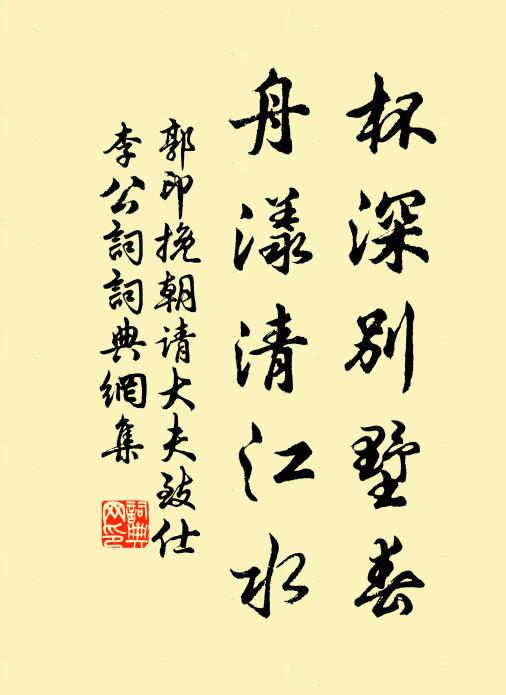 杯深别墅春
舟漾清江水
郭印挽朝请大夫致仕
李公詞詞典網集
詞典
网印